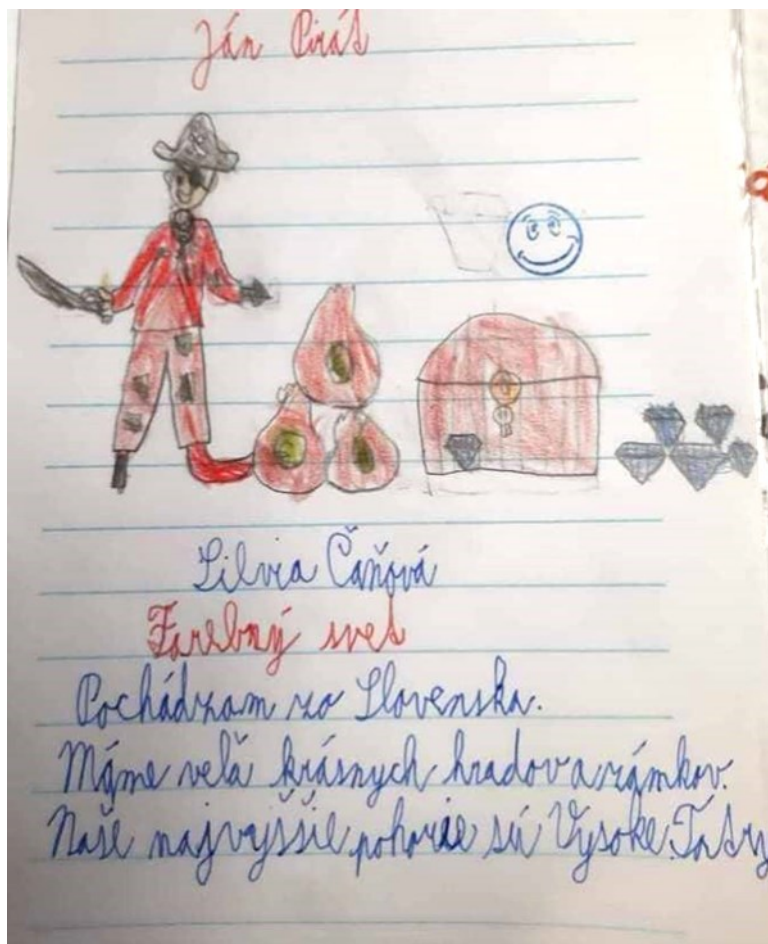 Ján Pirát
Silvia Čaňová
Farebný svet
Pochádzam zo Slovenska.
Máme veľa krásnych hradov a zámkov.
Naše najvyššie pohorie sú Vysoké Tatry